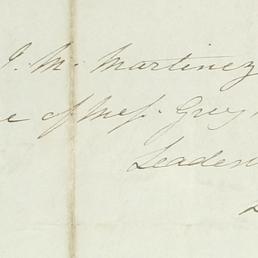 J. M. Martinez
e of Mess. Grey
Leaden